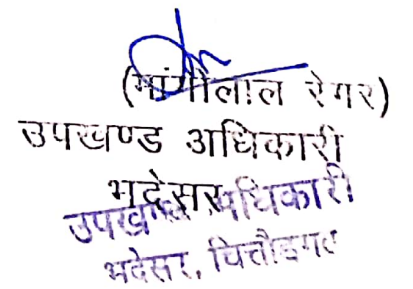 (मांगीलाल रेगर)
उपखण्ड अधिकारी
भदेसर
उपखण्ड अधिकारी
भदेसर, चित्तौड़गढ